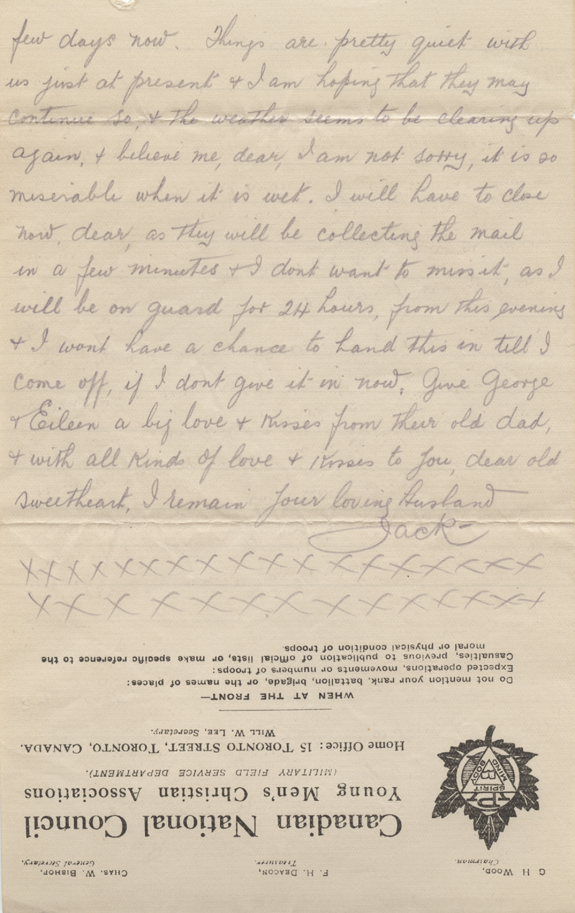 few days now. Things are pretty quiet with
us just at present & I am hoping that they may
continue so, & the weather seems to be clearing up
again, & believe me, dear, I am not sorry, it is so
miserable when it is wet. I will have to close
now, dear, as they will be collecting the mail
in a few minutes & I dont want to miss it, as I
will be on guard for 24 hours, from this evening
& I wont have a chance to hand this in till I
come off, if I dont give it in now. Give George
& Eileen a big love & Kisses from their old dad,
& with all Kinds of love & Kisses to you, dear old
sweetheart, I remain your loving Husband
Jack
XXXXXXXXXXXXXXXXXXXXX
XXXXXXXXXXXXXXXXXXX
G H WOOD,
Chairman.
F. H. DEACON,
Treasurer.
CHAS. W. BISHOP,
General Secretary.
Canadian National Council
Young Men's Christian Associations
(MILITARY FIELD SERVICE DEPARTMENT).
Home Office: 15 TORONTO STREET, TORONTO, CANADA.
WILL W. LEE, Secretary.
SPIRIT
MIND
BODY
WHEN AT THE FRONT—
Do not mention your rank, battalion, brigade, or the names of places:
Expected operations, movements or numbers of troops:
Casualties, previous to publication of official lists, or make specific reference to the
moral or physical condition of troops.